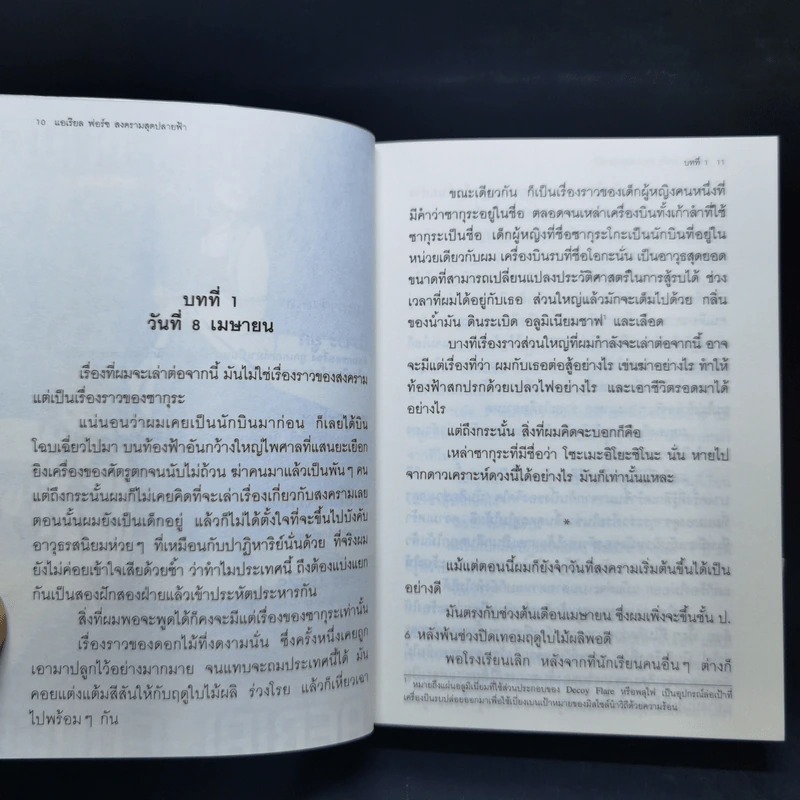 10 แอเรียล ฟอร์ซ สงครามสุดปลายฟ้า
บทที่ 1
วันที่ 8 เมษายน
เรื่องที่ผมจะเล่าต่อจากนี้ มันไม่ใช่เรื่องราวของสงคราม
แต่เป็นเรื่องราวของซากุระ
แน่นอนว่าผมเคยเป็นนักบินมาก่อน ก็เลยได้บิน
โฉบเฉี่ยวไปมา บนท้องฟ้าอันกว้างใหญ่ไพศาลที่แสนยะเยือก
ยิงเครื่องของศัตรูตกจนนับไม่ถ้วน ฆ่าคนมาแล้วเป็นพันๆ คน
แต่ถึงกระนั้นผมก็ไม่เคยคิดที่จะเล่าเรื่องเกี่ยวกับสงครามเลย
ตอนนั้นผมยังเป็นเด็กอยู่ แล้วก็ไม่ได้ตั้งใจที่จะขึ้นไปบังคับ
อาวุธรสนิยมห่วยๆ ที่เหมือนกับปาฏิหาริย์นั่นด้วย ที่จริงผม
ยังไม่ค่อยเข้าใจเสียด้วยซ้ำ ว่าทำไมประเทศนี้ ถึงต้องแบ่งแยก
กันเป็นสองฝักสองฝ่ายแล้วเข้าประหัตประหารกัน
สิ่งที่ผมพอจะพูดได้ก็คงจะมีแต่เรื่องของซากุระเท่านั้น
เรื่องราวของดอกไม้ที่งดงามนั่น ซึ่งครั้งหนึ่งเคยถูก
เอามาปลูกไว้อย่างมากมาย จนแทบจะถมประเทศนี้ได้ มัน
คอยแต่งแต้มสีสันให้กับฤดูใบไม้ผลิ ร่วงโรย แล้วก็เหี่ยวเฉา
ไปพร้อมๆ กัน
บทที่ 1 11
ขณะเดียวกัน ก็เป็นเรื่องราวของเด็กผู้หญิงคนหนึ่งที่
มีคำว่าซากุระอยู่ในชื่อ ตลอดจนเหล่าเครื่องบินทั้งเก้าลำที่ใช้
ซากุระเป็นชื่อ เด็กผู้หญิงที่ชื่อซากุระโกะเป็นนักบินที่อยู่ใน
หน่วยเดียวกับผม เครื่องบินรบที่ชื่อโอกะนั่น เป็นอาวุธสุดยอด
ขนาดที่สามารถเปลี่ยนแปลงประวัติศาสตร์ในการสู้รบได้ ช่วง
เวลาที่ผมได้อยู่กับเธอ ส่วนใหญ่แล้วมักจะเต็มไปด้วย กลิ่น
ของน้ำมัน ดินระเบิด อลูมิเนียมชาฟ¹ และเลือด
บางทีเรื่องราวส่วนใหญ่ที่ผมกำลังจะเล่าต่อจากนี้ อาจ
จะมีแต่เรื่องที่ว่า ผมกับเธอต่อสู้อย่างไร เข่นฆ่าอย่างไร ทำให้
ท้องฟ้าสกปรกด้วยเปลวไฟอย่างไร และเอาชีวิตรอดมาได้
อย่างไร
แต่ถึงกระนั้น สิ่งที่ผมคิดจะบอกก็คือ
เหล่าซากุระที่มีชื่อว่า โซะเมะอิโยะชิโนะ นั่น หายไป
จากดาวเคราะห์ดวงนี้ได้อย่างไร มันก็เท่านั้นแหละ
*
แม้แต่ตอนนี้ผมก็ยังจำวันที่สงครามเริ่มต้นขึ้นได้เป็น
อย่างดี
มันตรงกับช่วงต้นเดือนเมษายน ซึ่งผมเพิ่งจะขึ้นชั้น ป.
6 หลังพ้นช่วงปิดเทอมฤดูใบไม้ผลิพอดี
พอโรงเรียนเลิก หลังจากที่นักเรียนคนอื่นๆ ต่างก็
¹ หมายถึงแผ่นอลูมิเนียมที่ใช้ส่วนประกอบของ Decoy Flare หรือพลุไฟ เป็นอุปกรณ์ล่อเป้าที่
เครื่องบินรบปล่อยออกมาเพื่อใช้เบี่ยงเบนเป้าหมายของมิสไซล์นำวิถีด้วยความร้อน